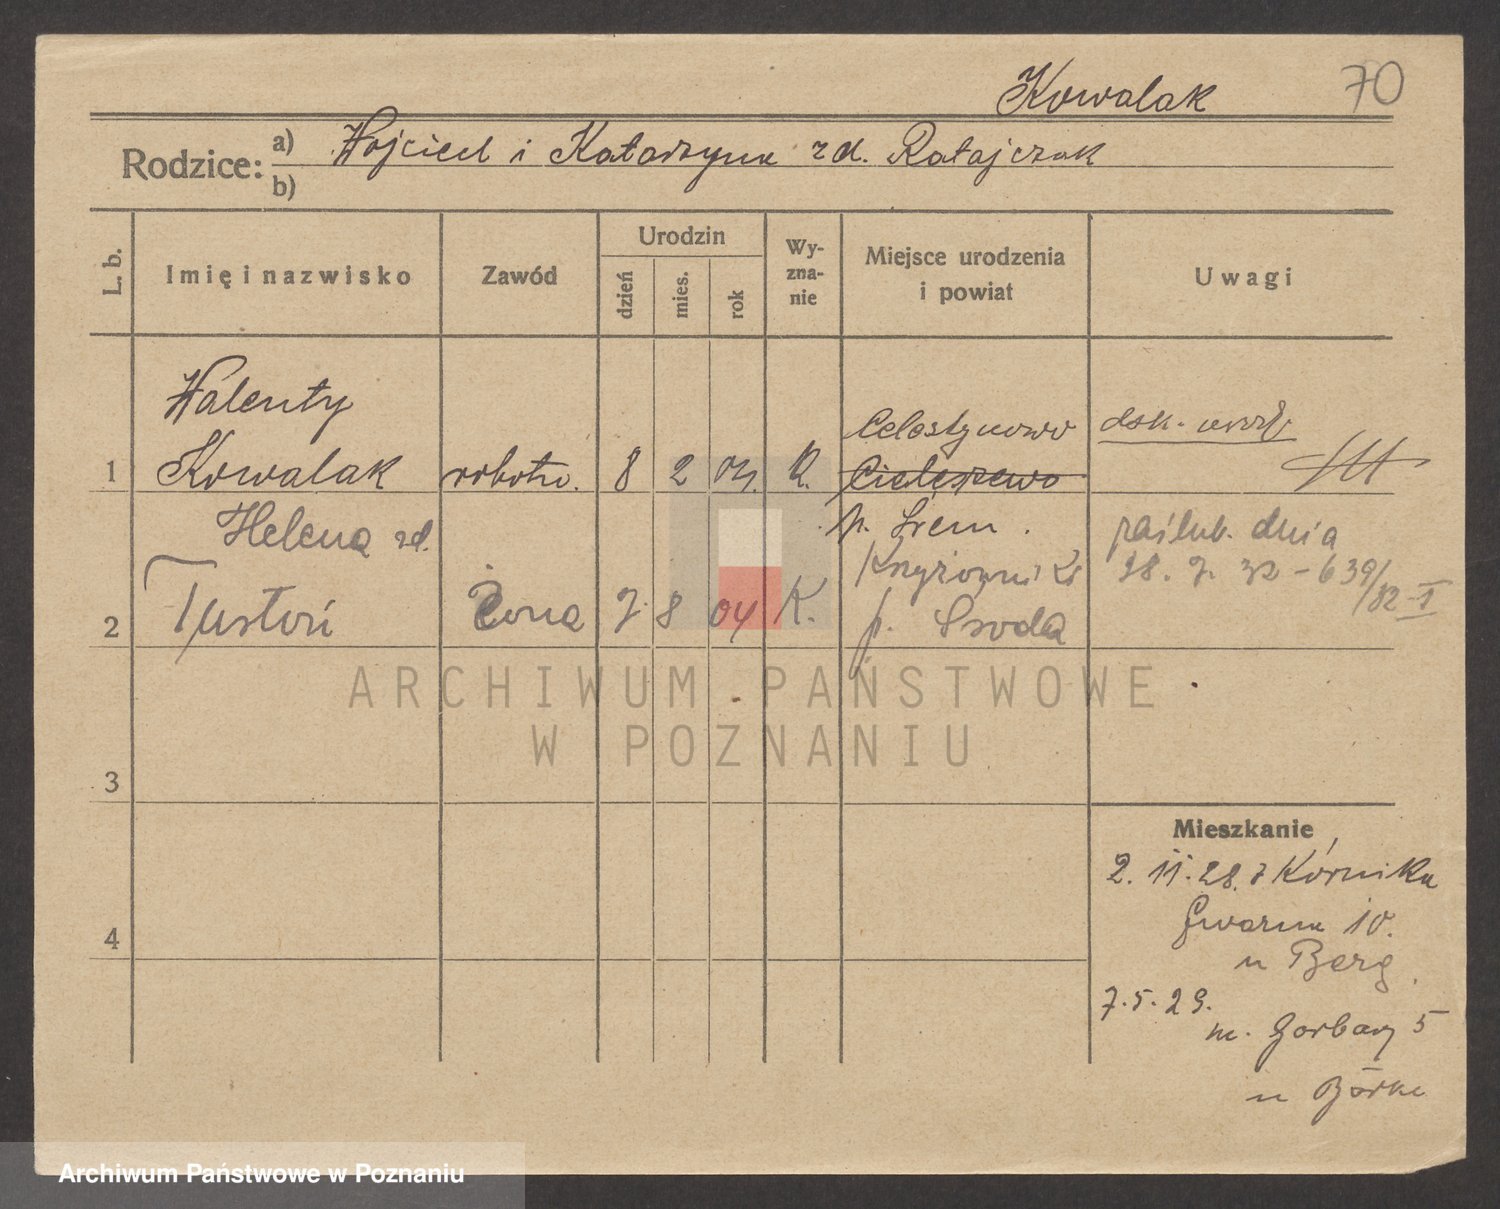 Kowalak 70
Rodzice: a) Wojciech i Katarzyna zd. Ratajczak
b)
L. b.
Imię i nazwisko
Zawód
Urodzin
dzień
mies.
rok
Wy-
zna-
nie
Miejsce urodzenia
i powiat
Uwagi
Walenty
Celestynowo
1 Kowalak robotn. 8 2 04. K. Cielęszewo
p. Śrem.
Helena zd.
2 Tustoń Żona 7. 8 04 K.
p. Środa
dsk.
poślub. dnia
28. 7. 32 - 639/
/32-I
3
4
Mieszkanie
2. 11. 28. z Kórnika
Gwarna 10.
u Berg.
7. 5. 29.
m. Garbary 5
u Börke
ARCHIWUM PAŃSTWOWE
W POZNANIU
Archiwum Państwowe w Poznaniu